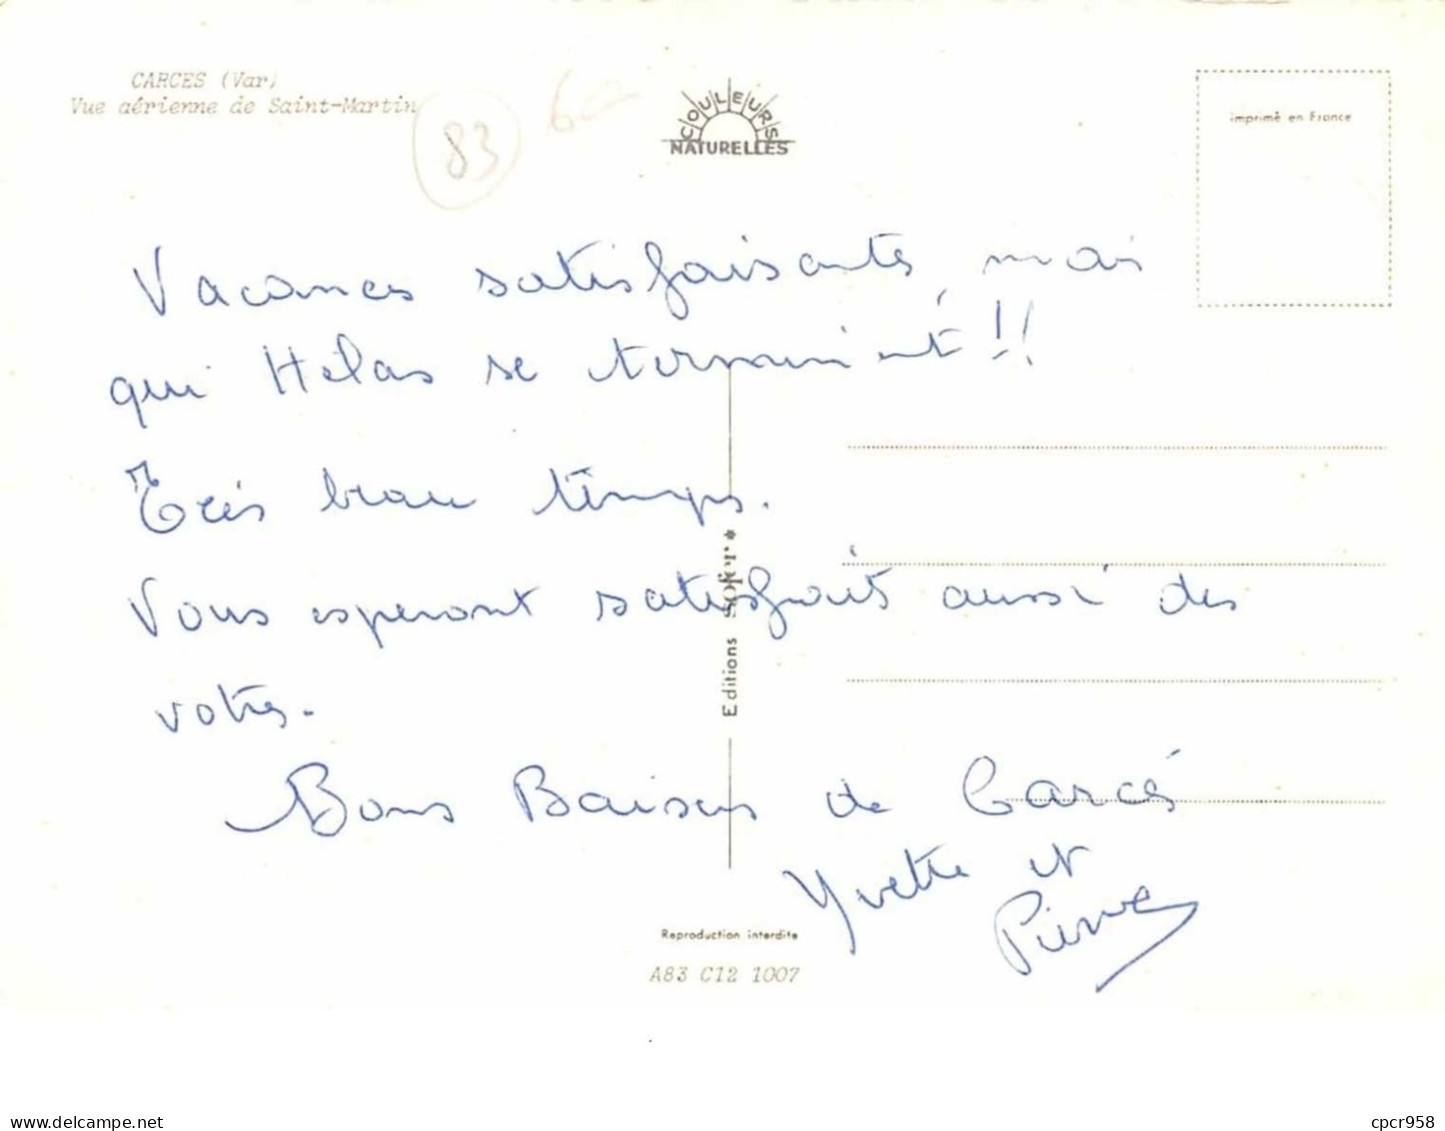 CARCES (Var)
Vue aérienne de Saint-Martin
83
COULEURS
NATURELLES
imprimé en France
Vacances satisfaisantes, mais
qui Hélas se terminent !!
Très beau temps.
Vous esperont satisfait aussi des
votres.
Bons Baisers de Carcés
Yvette et
Pierre
Editions SOFER *
Reproduction interdite
A83 C12 1007
delcampe.net
cpcr958